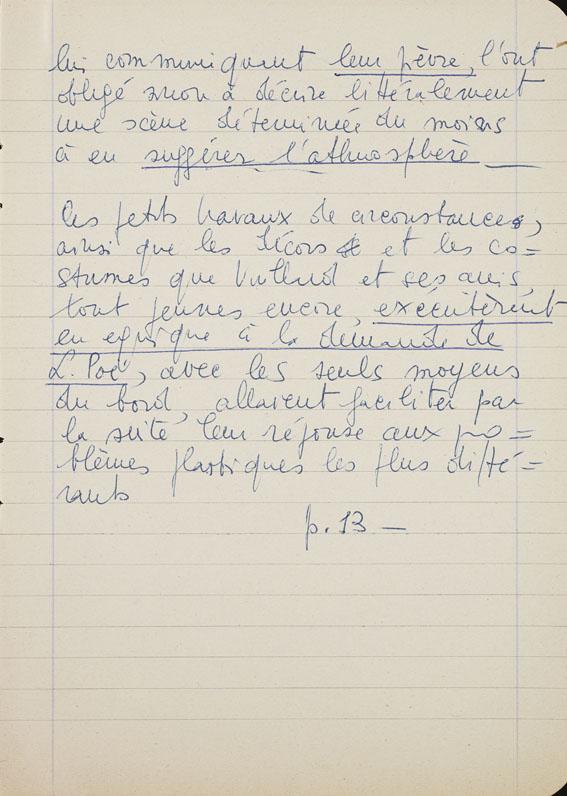 lui communiquant leur fièvre, l'ont
obligé sinon à décrire littéralement
une scène déterminée du moins
à en suggérer l'athmosphère —
Ces petits travaux de circonstances,
ainsi que les décors et les co=
stumes que Vuillard et ses amis,
tout jeunes encore, exécutèrent
en equique à la demande de
L. Poë, avec les seuls moyens
du bord, allaient faciliter par
la suite leur réponse aux pro=
blèmes plastiques les plus diffé=
rants
p. 13 —